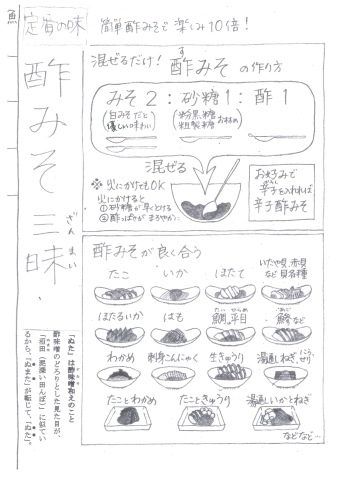 魚
定番の味 簡単酢みそで楽しみ10倍！
酢みそ三昧
ざんまい
混ぜるだけ！酢みその作り方
す
みそ2：砂糖1：酢1
白みそだと
優しい味わい
粉黒糖
粗製糖
おすすめ
混ぜる
※火にかけてもOK
火にかけると
①砂糖が早くとける
②酢っぱみがまろやかに
お好みで
辛子を入れれば
辛子酢みそ
酢みそが良く合う
たこ
いか
ほたて
いたや貝、赤貝
など貝各種
ほたるいか
はも
鯛、平目
たい ひらめ
鯵など
あじ
わかめ
刺身こんにゃく
生きゅうり
湯通しねぎ、にら、せり
たことわかめ
たことき​ゅうり
湯通しいかとねぎ
などなど…
「ぬた」は酢味噌和えのこと
酢味噌のどろりとした見た目が、
「沼田（泥深い田んぼ）」に似てい
るから、「ぬまた」が転じて、「ぬた」。